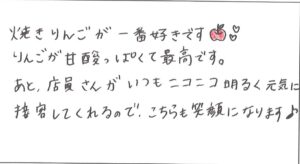 焼きりんごが一番好きです🍎♡♡
りんごが甘酸っぱくて最高です。
あと、店員さんがいつもニコニコ明るく元気に
接客してくれるので、こちらも笑顔になります♪